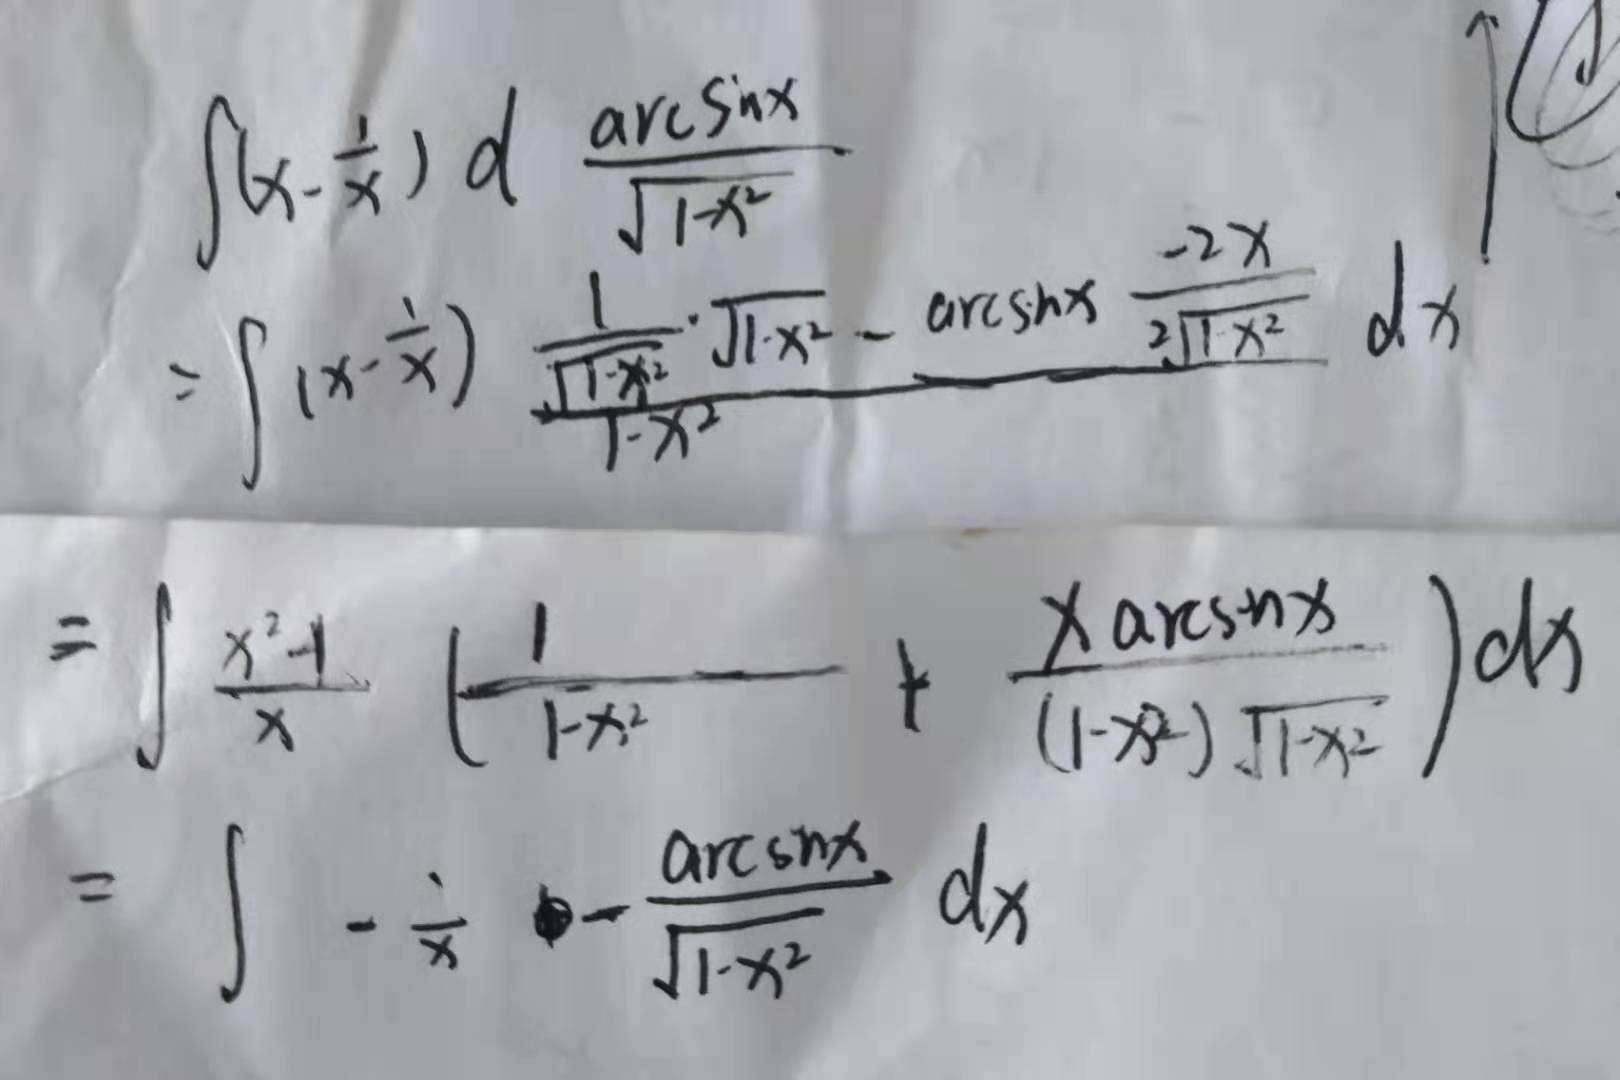 ∫(x - 1/x) d (arcsinx)/(√(1-x²))
= ∫ (x - 1/x) (1/√(1-x²) · √(1-x²) - arcsinx (-2x)/(2√(1-x²)))/(1-x²) dx
= ∫ (x²-1)/x (1/(1-x²) + (x arcsinx)/((1-x²)√(1-x²))) dx
= ∫ - 1/x - (arcsinx)/(√(1-x²)) dx